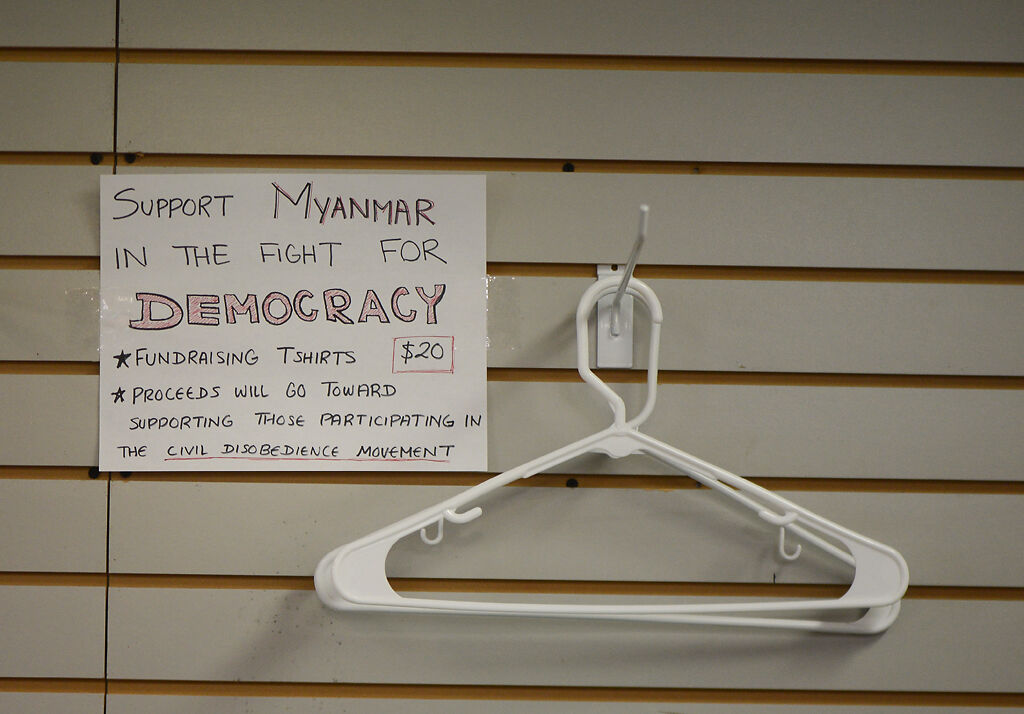 SUPPORT MYANMAR
IN THE FIGHT FOR
DEMOCRACY
★ FUNDRAISING TSHIRTS $20
★ PROCEEDS WILL GO TOWARD
SUPPORTING THOSE PARTICIPATING IN
THE CIVIL DISOBEDIENCE MOVEMENT